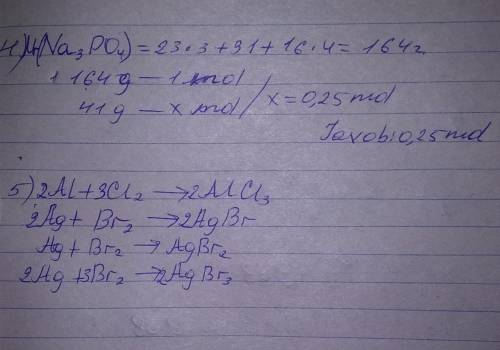 4) M(Na₃PO₄) = 23·3 + 31 + 16·4 = 164г
164 g — 1 mol
41 g — x mol / x = 0,25 mol
Javobi 0,25 mol
5) 2Al + 3Cl₂ → 2AlCl₃
2Ag + Br₂ → 2AgBr
Ag + Br₂ → AgBr₂
2Ag + 3Br₂ → 2AgBr₃